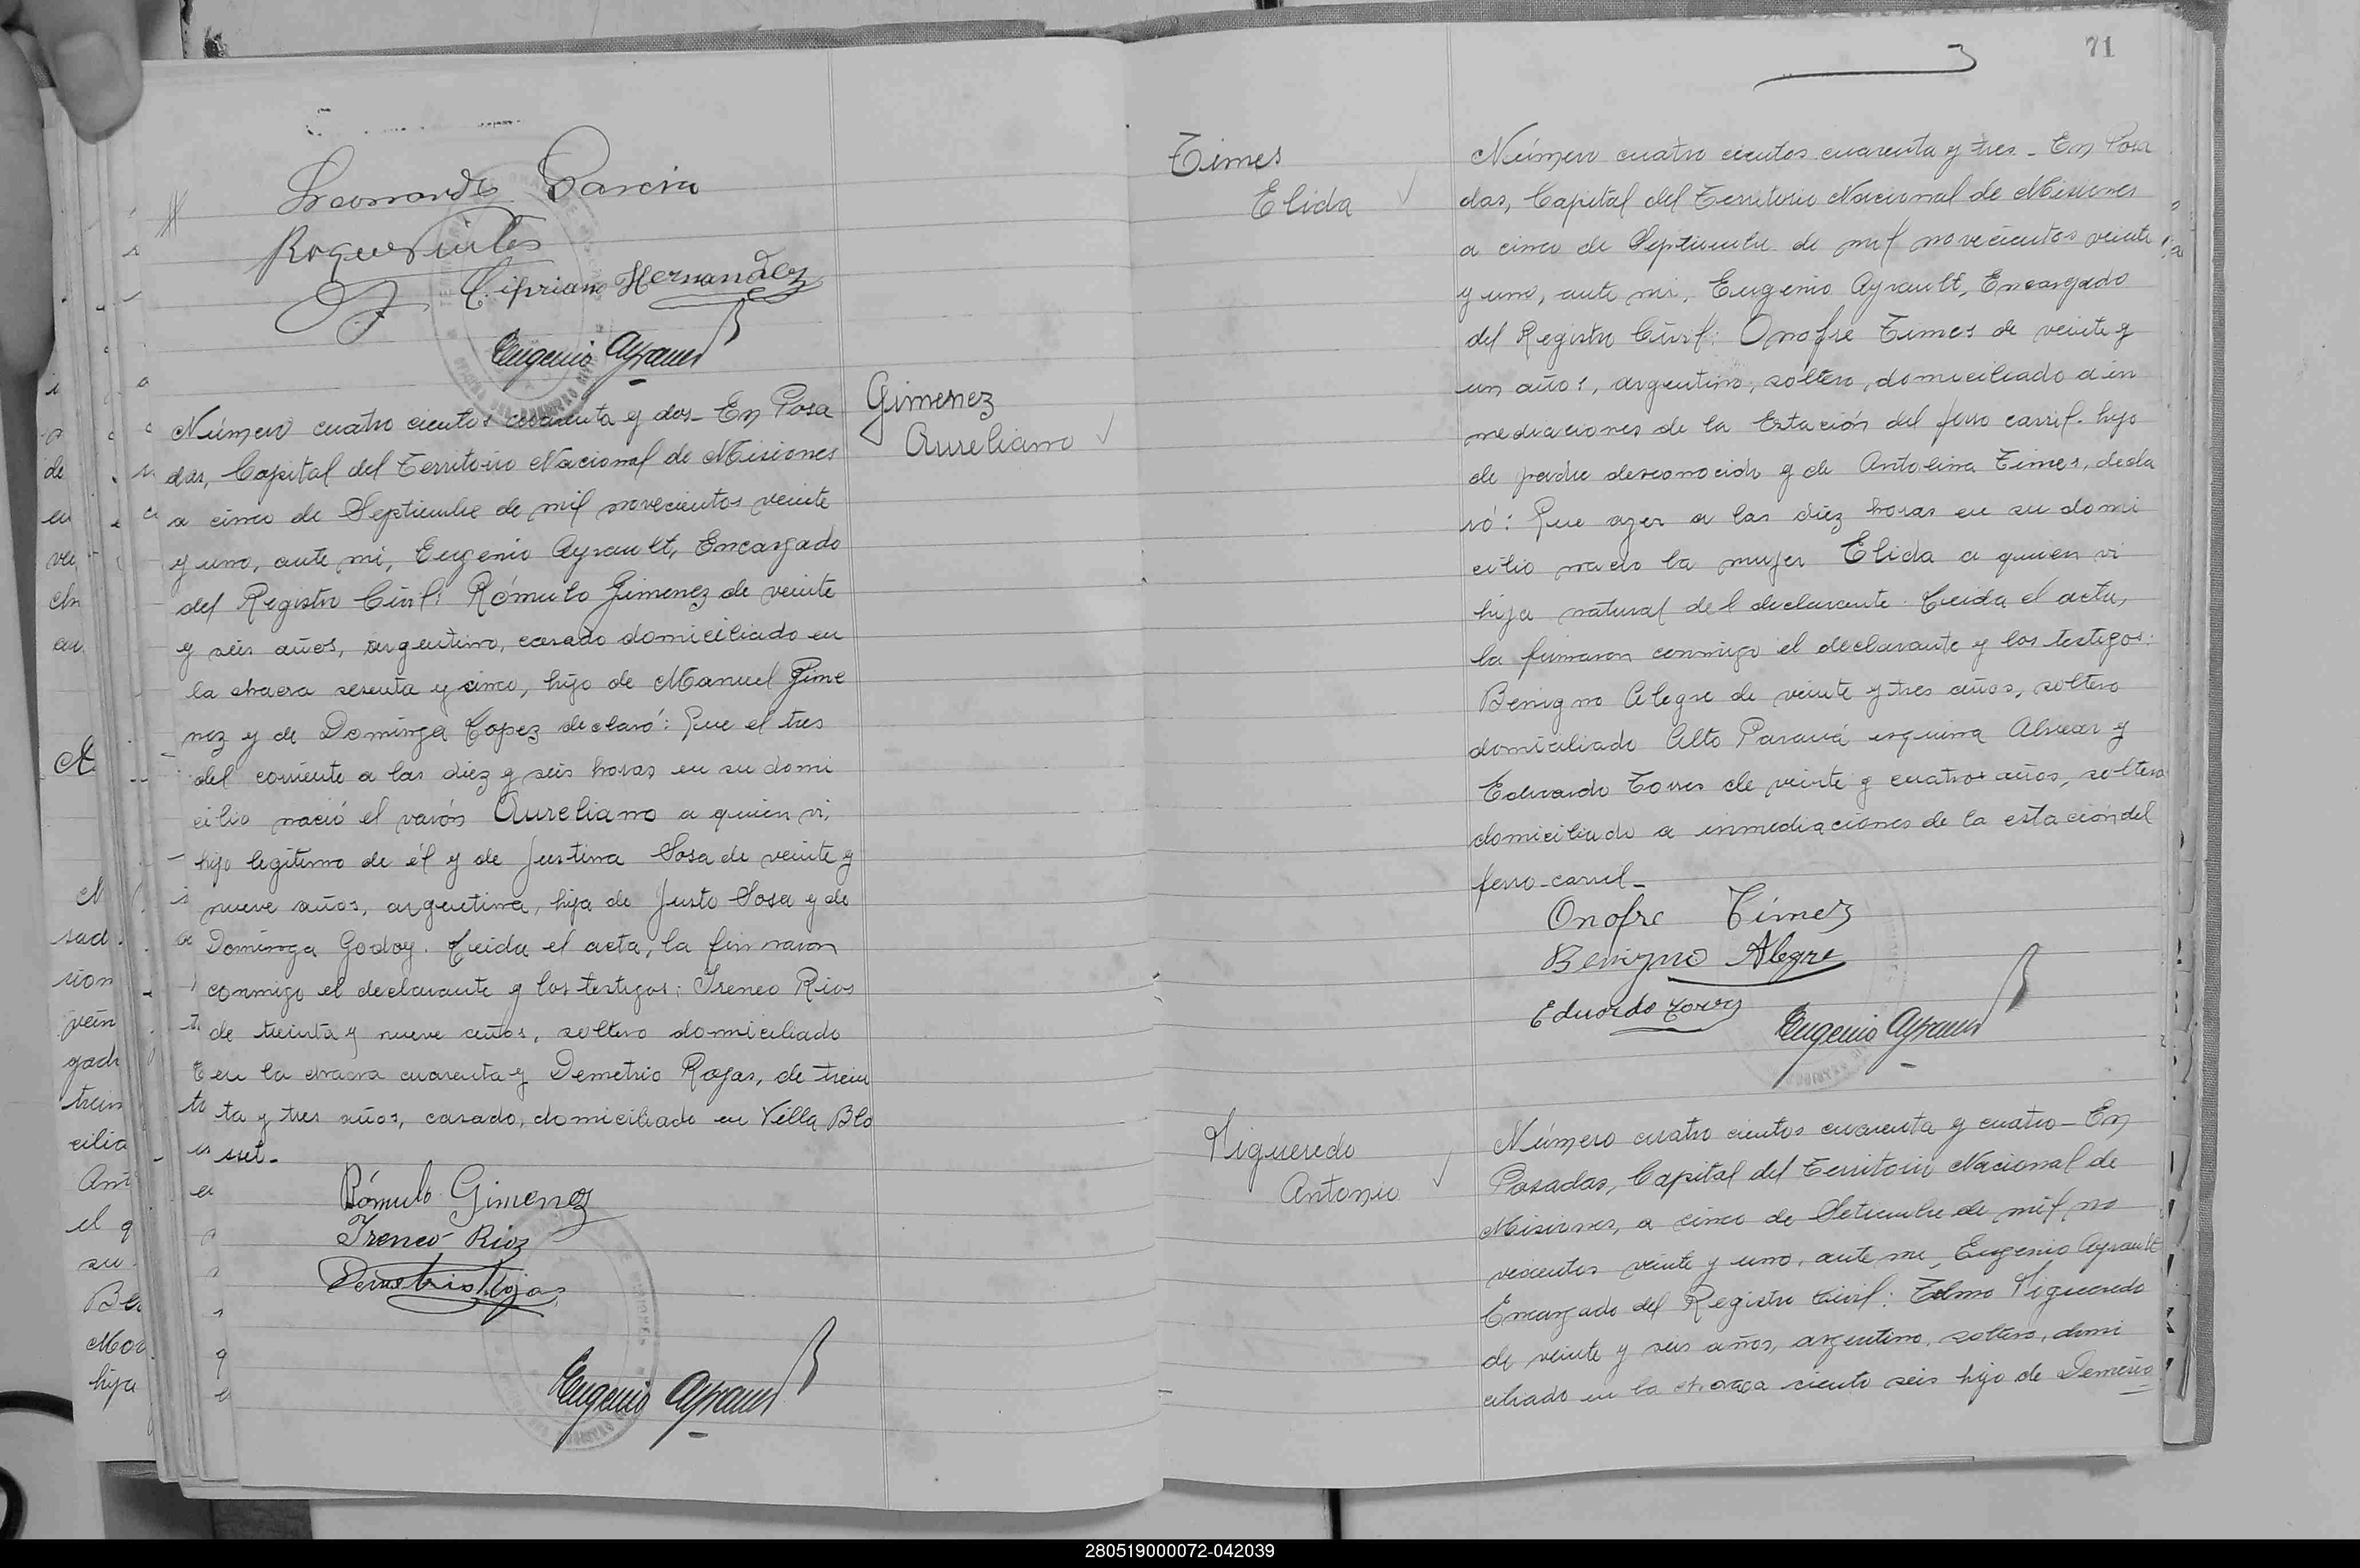 Leonardo Garcia
Roque
Cipriano Hernandez
Eugenio Ayrault
Gimenez
Aureliano
Número cuatro cientos cuarenta y dos - En Posa
das, Capital del Territorio Nacional de Misiones
a cinco de Septiembre de mil novecientos veinte
y uno, ante mi, Eugenio Ayrault, Encargado
del Registro Civil: Rómulo Gimenez de veinte
y seis años, argentino, casado domiciliado en
la chacra sesenta y cinco, hijo de Manuel Gime
nez y de Dominga Lopez declaró: Que el tres
del corriente a las diez y seis horas en su domi
cilio nació el varón Aureliano a quien vi,
hijo legítimo de él y de Justina Sosa de veinte y
nueve años, argentina, hija de Justo Sosa y de
Dominga Godoy. Leida el acta, la firmaron
conmigo el declarante y los testigos: Ireneo Rios
de treinta y nueve años, soltero domiciliado
en la chacra cuarenta y Demetrio Rojas, de trein
ta y tres años, casado, domiciliado en Villa Blo
sset.
Rómulo Gimenez
Ireneo Rioz
Demetrio Rojas
Eugenio Ayrault
71
Times
Elida
Número cuatro cientos cuarenta y tres - En Posa
das, Capital del Territorio Nacional de Misiones
a cinco de Septiembre de mil novecientos veinte
y uno, ante mi, Eugenio Ayrault, Encargado
del Registro Civil: Onofre Times de veinte y
un años, argentino, soltero, domiciliado a in
mediaciones de la Estación del ferro carril. hijo
de padre desconocido y de Antolina Times, decla
ró: Que ayer a las diez horas en su domi
cilio nacio la mujer Elida a quien vi
hija natural del declarante. Leida el acta,
la firmaron conmigo el declarante y los testigos:
Benigno Alegre de veinte y tres años, soltero
domiciliado Alto Paraná esquina Alvear y
Eduardo Torres de veinte y cuatro años, soltero
domiciliado a inmediaciones de la estación del
ferro-carril-
Onofre Timez
Benigno Alegre
Eduardo Torres
Eugenio Ayrault
Figueredo
Antonio
Número cuatro cientos cuarenta y cuatro - En
Posadas, Capital del Territorio Nacional de
Misiones, a cinco de Setiembre de mil no
vecientos veinte y uno, ante mi, Eugenio Ayrault
Encargado del Registro Civil: Telmo Figueredo
de veinte y seis años, argentino, soltero, domi
ciliado en la chacra ciento seis hijo de Demesio
280519000072-042039